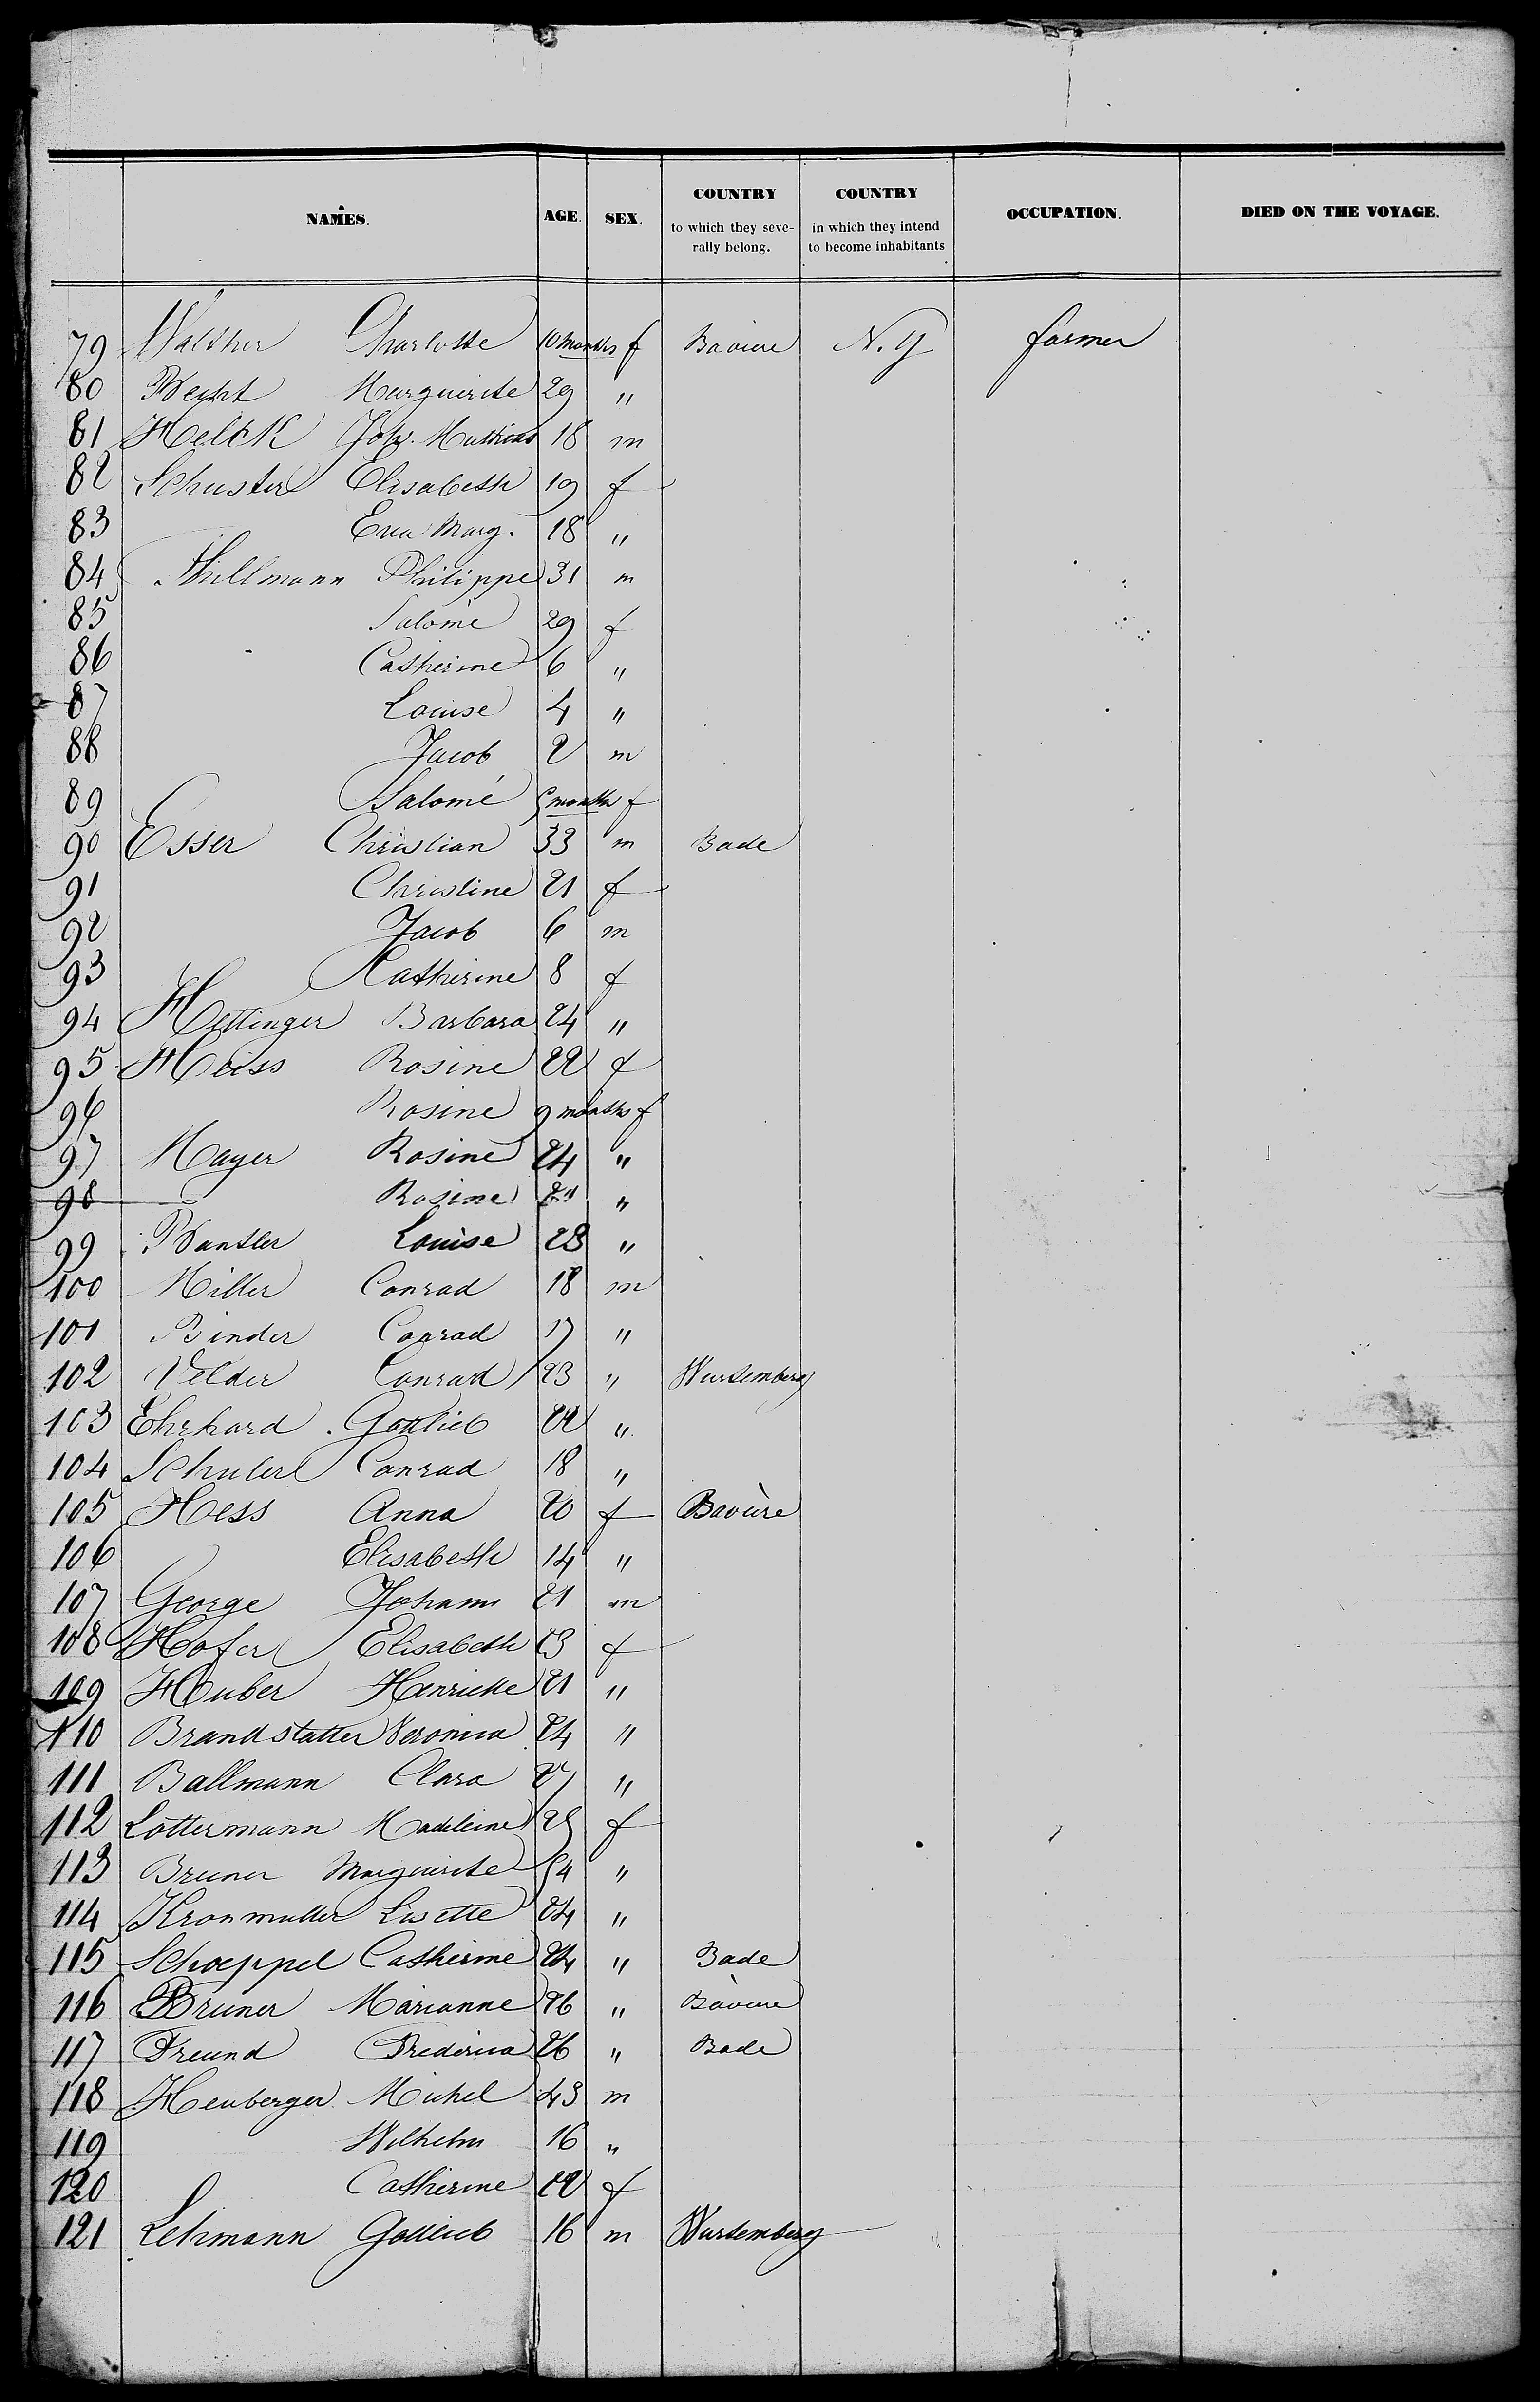 NAMES. AGE. SEX. COUNTRY to which they seve- rally belong. COUNTRY in which they intend to become inhabitants OCCUPATION. DIED ON THE VOYAGE.
79 Walther Charlotte 10 months f Baviere N. Y farmer
80 Marguerite 29 "
81 Helck Joh. Mathias 18 m
82 Schuster Elisabeth 19 f
83 Eva Marg. 18 "
84 Philippe 31 m
85 Salomé 29 f
86 Catherine 6 "
87 Louise 4 "
88 Jacob 2 m
89 Salomé months f
90 Esser Christian 33 m Bade
91 Christine 21 f
92 Jacob 6 m
93 Catherine 8 f
94 Hettinger Barbara 24 "
95 Heiss Rosine 22 f
96 Rosine 9 months f
97 Mayer Rosine 24 "
98 Rosine "
99 Louise 23 "
100 Miller Conrad 18 m
101 Binder Conrad 17 "
102 Velder Conrad 23 " Wurtemberg
103 Ehrhard Gottlieb 22 "
104 Schuler Conrad 18 "
105 Hess Anna 20 f Bavière
106 Elisabeth 14 "
107 George Johann 21 m
108 Hofer Elisabeth 23 f
109 Huber Henriette 21 "
110 Brandstatter Veronica 24 "
111 Ballmann Clara 27 "
112 Lottermann Madeleine 25 f
113 Bruner Marguerite 54 "
114 Kronmuller Lisette 24 "
115 Schoeppel Catherine 24 " Bade
116 Bruner Marianne 26 " Baviere
117 Freund Frederica 26 " Bade
118 Heuberger Michel 43 m
119 Wilhelm 16 "
120 Catherine 22 f
121 Lehmann Gottlieb 16 m Wurtemberg